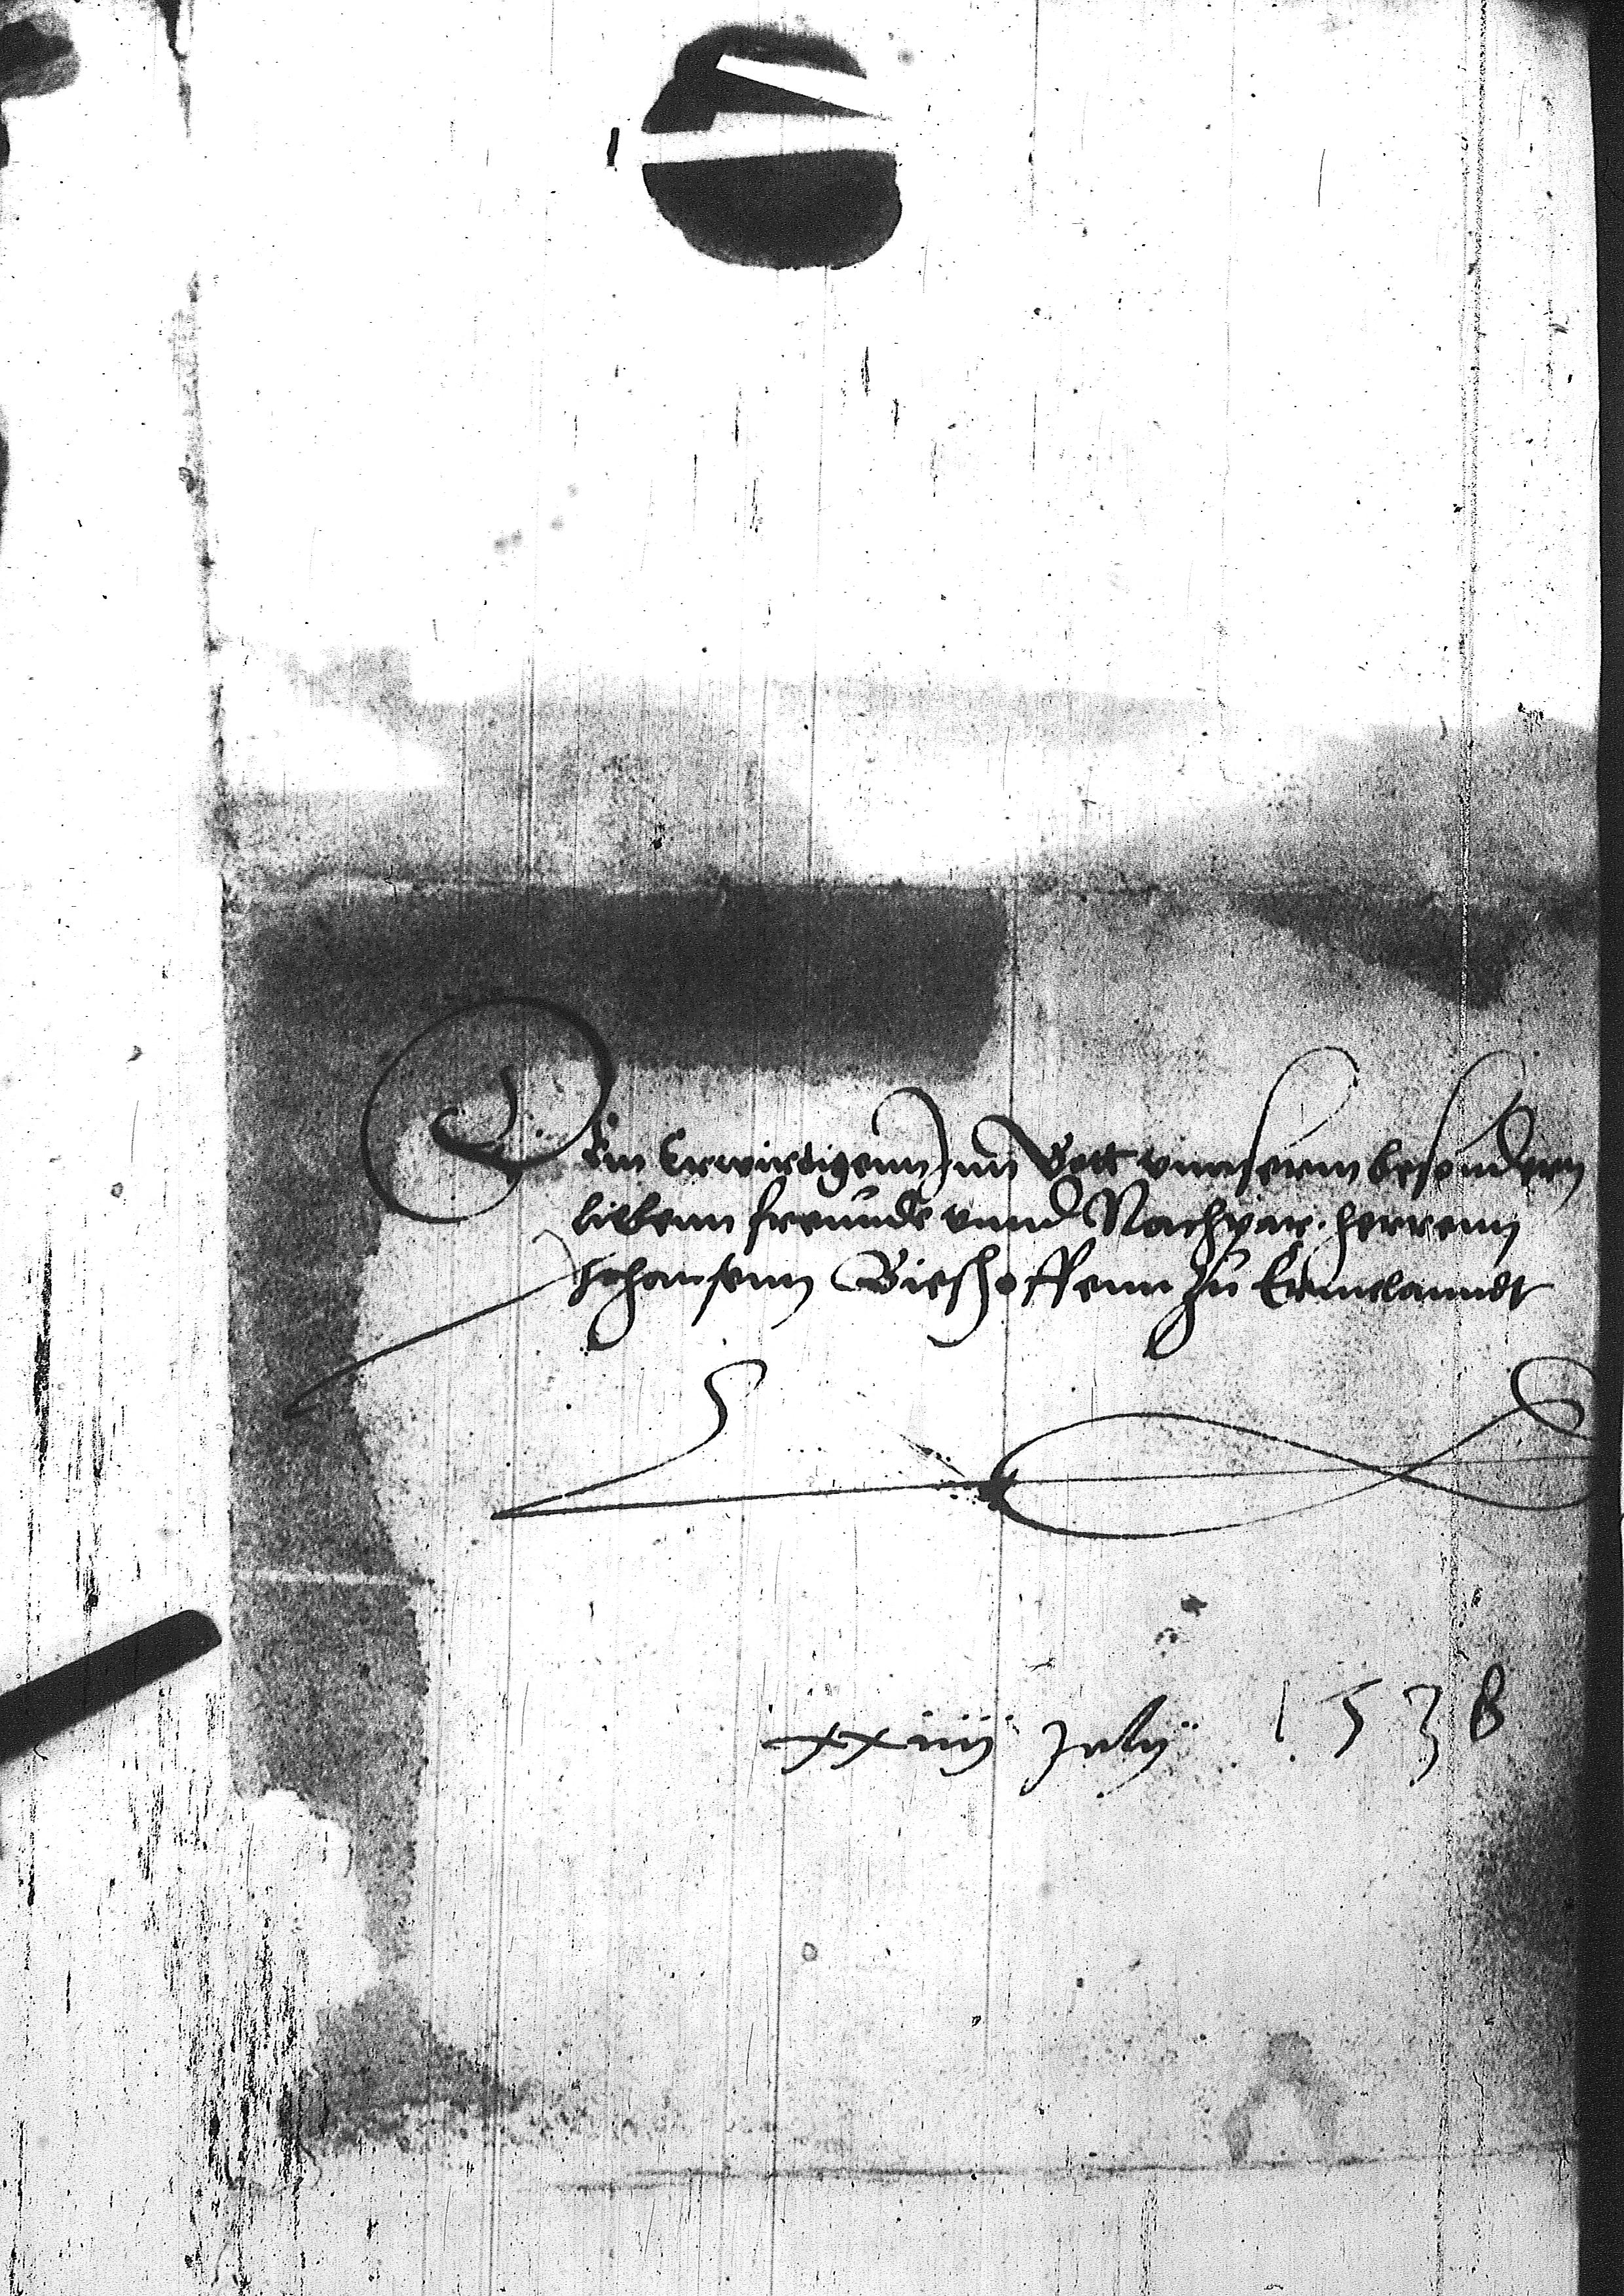 Dem Erwirdigenn Inn Gott vnnserm besondern
liebenn freunde vnnd Nachpar. herrenn
Johansenn Bieshoffenn zu Ermelanndt
xxiiij Julij 1538